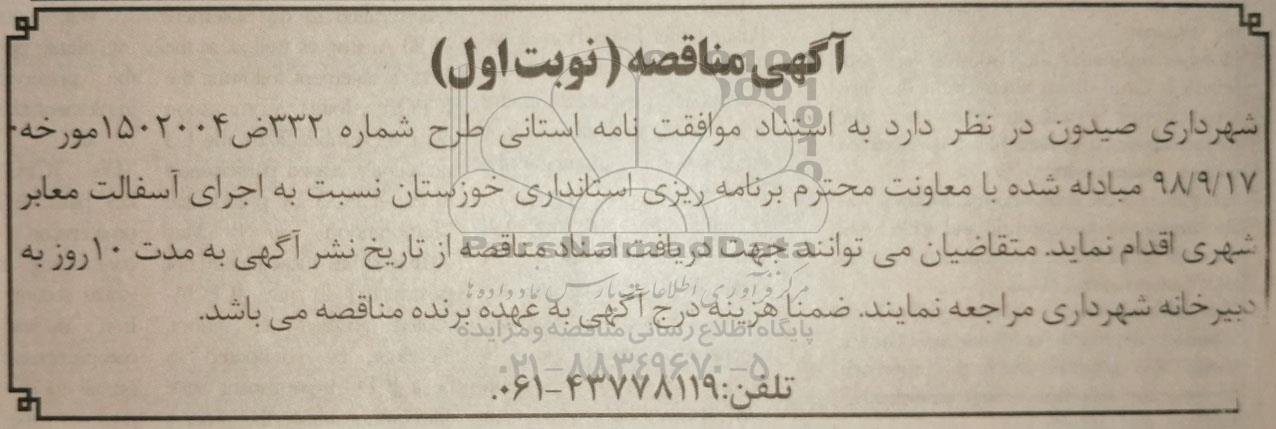 آگهی مناقصه (نوبت اول)
شهرداری صیدون در نظر دارد به استناد موافقت نامه استانی طرح شماره ۳۳۲ض۱۵۰۲۰۰۴مورخه
۹۸/۹/۱۷ مبادله شده با معاونت محترم برنامه ریزی استانداری خوزستان نسبت به اجرای آسفالت معابر
شهری اقدام نماید. متقاضیان می توانند جهت دریافت اسناد مناقصه از تاریخ نشر آگهی به مدت ۱۰روز به
ParsNamadData
مرکز فرآوری اطلاعات پارس نماد داده ها
دبیرخانه شهرداری مراجعه نمایند. ضمنا هزینه درج آگهی به عهده برنده مناقصه می باشد.
پایگاه اطلاع رسانی مناقصه و مزایده
۰۲۱-۸۸۳۴۹۶۷۰-۵
تلفن:۴۳۷۷۸۱۱۹-۰۶۱